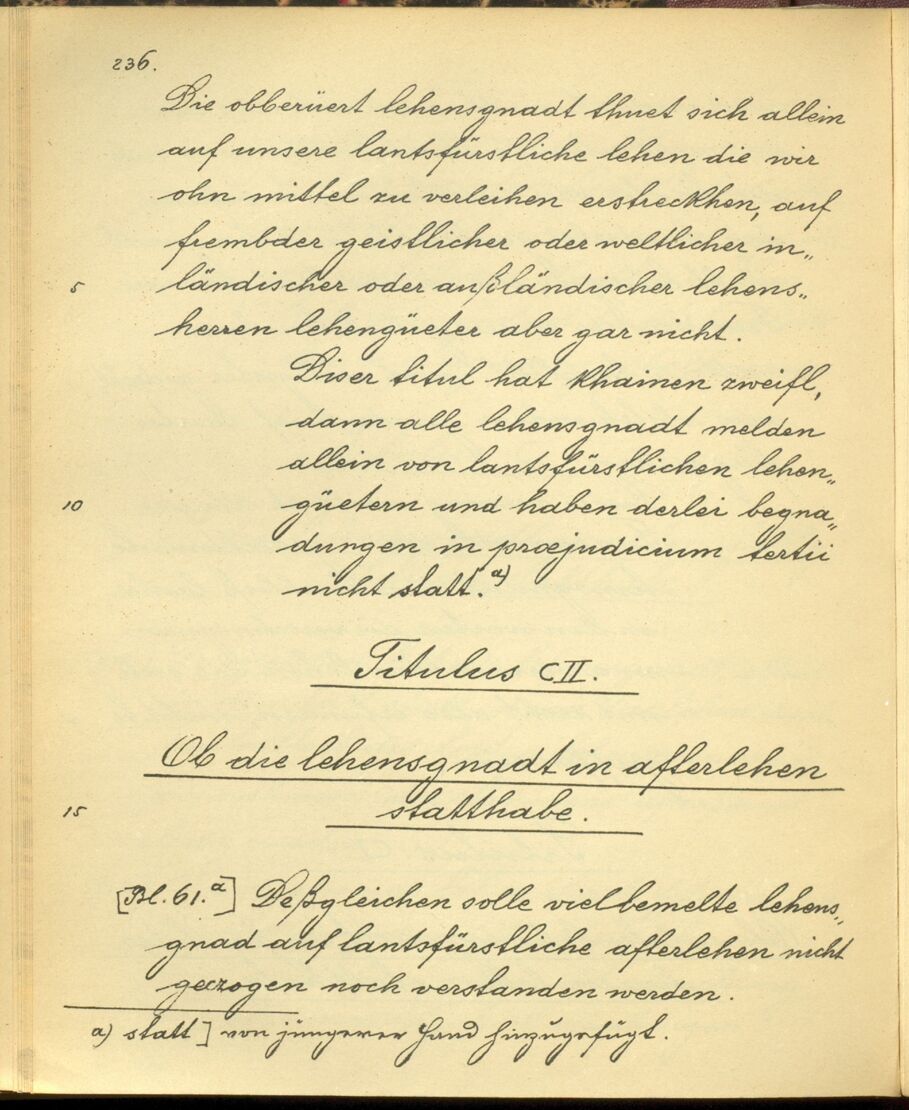 236.
Die obberüert lehensgnadt thuet sich allein
auf unsere lantsfürstliche lehen die wir
ohn mittel zu verleihen erstreckhen, auf
frembder geistlicher oder weltlicher in„
5 ländischer oder außländischer lehens„
herren lehengüeter aber gar nicht.
Diser titul hat khainen zweifl,
dann alle lehensgnadt melden
allein von lantsfürstlichen lehen„
10 güetern und haben derlei begna„
dungen in præjudicium tertii
nicht statt.a)
Titulus CII.
Ob die lehensgnadt in afterlehen
15 statthabe.
[Bl. 61.a] Deßgleichen solle vielbemelte lehens„
gnad auf lantsfürstliche afterlehen nicht
gezogen noch verstanden werden.
a) statt] von jüngerer Hand hinzugefügt.